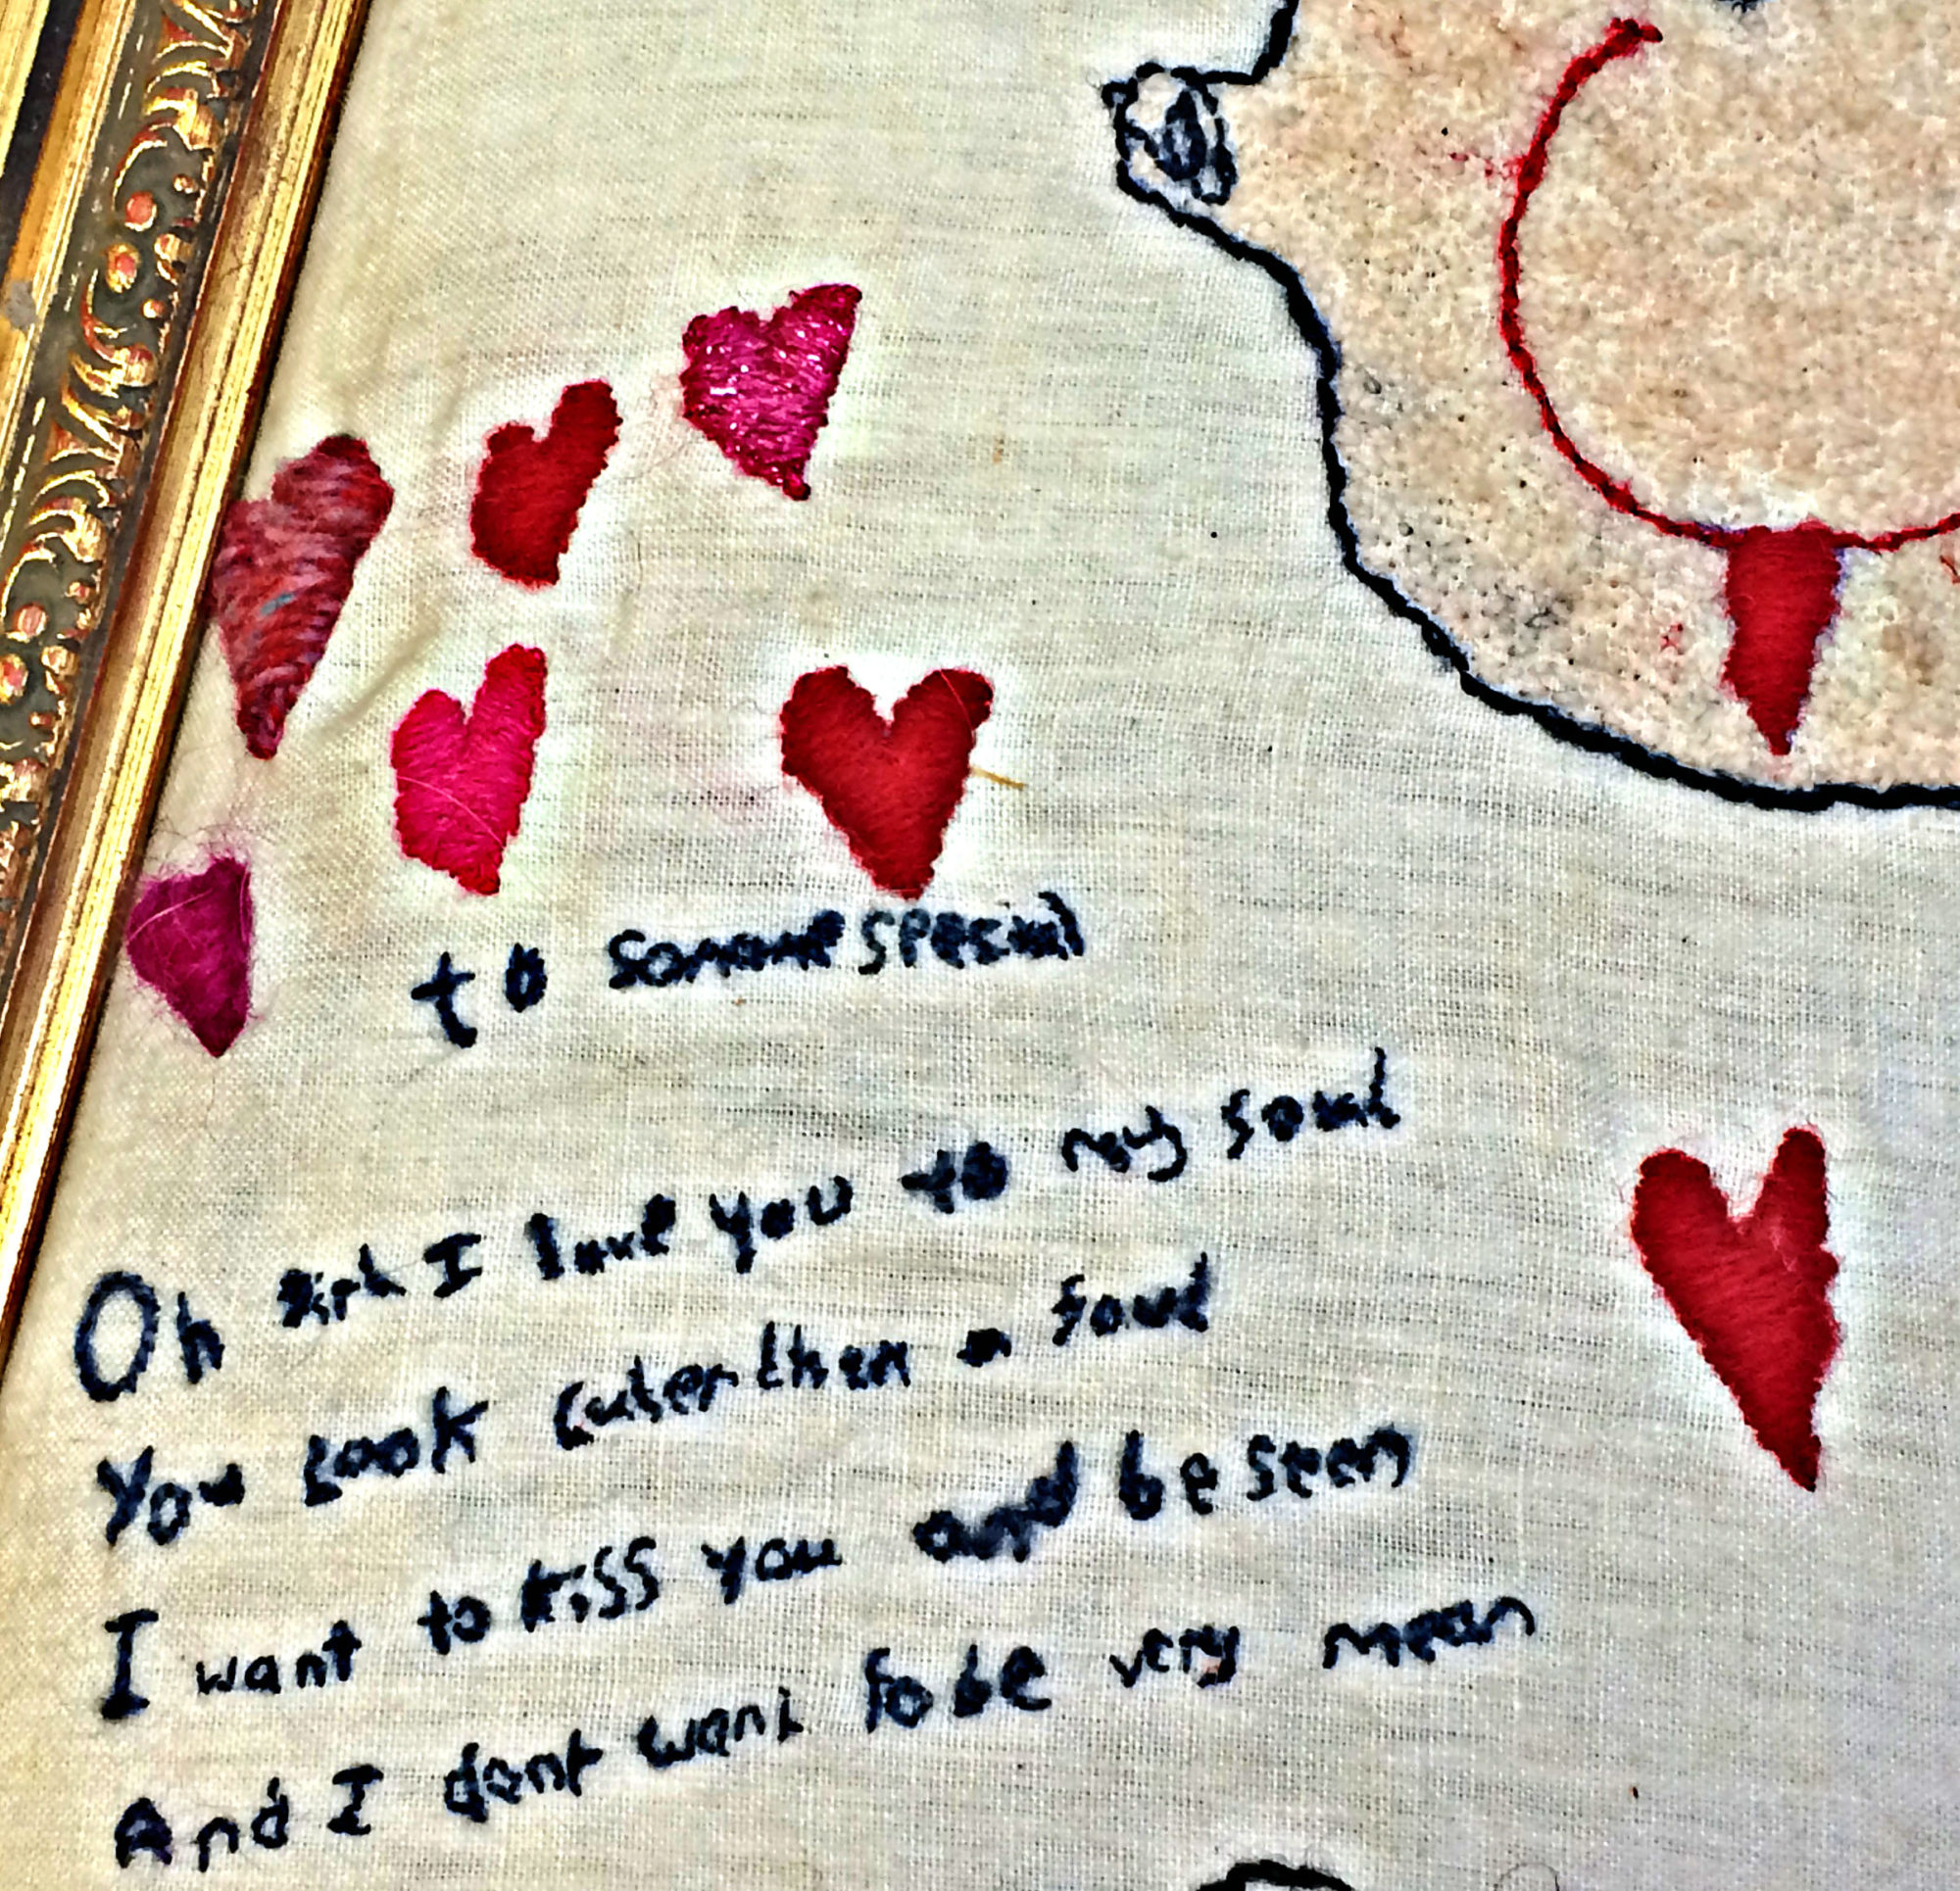 to someone special
Oh I love you to my soul
You Look cuter then a foul
I want to kiss you and be seen
And I dont want to be very mean